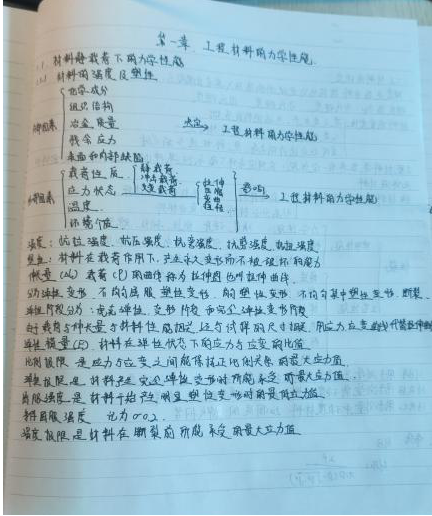 第一章 工程材料的力学性能
1.1 材料静载荷下的力学性能
1.1.1 材料的强度及塑性
化学成分
组织结构
内部因素 冶金质量 决定 工程材料的力学性能
残余应力
表面和内部缺陷
载荷性质 静载荷 冲击载荷 交变载荷
外部因素 应力状态 拉伸 压缩 弯曲 扭转 影响 工程材料的力学性能
温度
环境介质
强度：抗拉强度、抗压强度、抗弯强度、抗剪强度、抗扭强度
塑性：材料在载荷作用下，产生永久变形而不被破坏的能力
伸长量（ΔL）载荷（P）的曲线称为拉伸图也叫拉伸曲线.
分为弹性变形、不均匀屈服塑性变形、均匀塑性变形、不均匀集中塑性变形、断裂.
弹性阶段分为：完全弹性变形阶段和完全弹性变形阶段
由于载荷与伸长量与材料性能因之 还与试样的尺寸相关，用应力应变曲线代替拉伸
弹性模量（E）：材料在弹性状态下的应力与应变的比值
比例极限 是应力与应变之间能保持正比例关系的最大应力值.
弹性极限是 材料产生完全弹性变形时所能承受的最大应力值.
屈服强度是材料开始产生明显塑性变形时的最低应力值.
条件屈服强度 记为σ0.2
强度极限是材料在断裂前所能承受的最大应力值